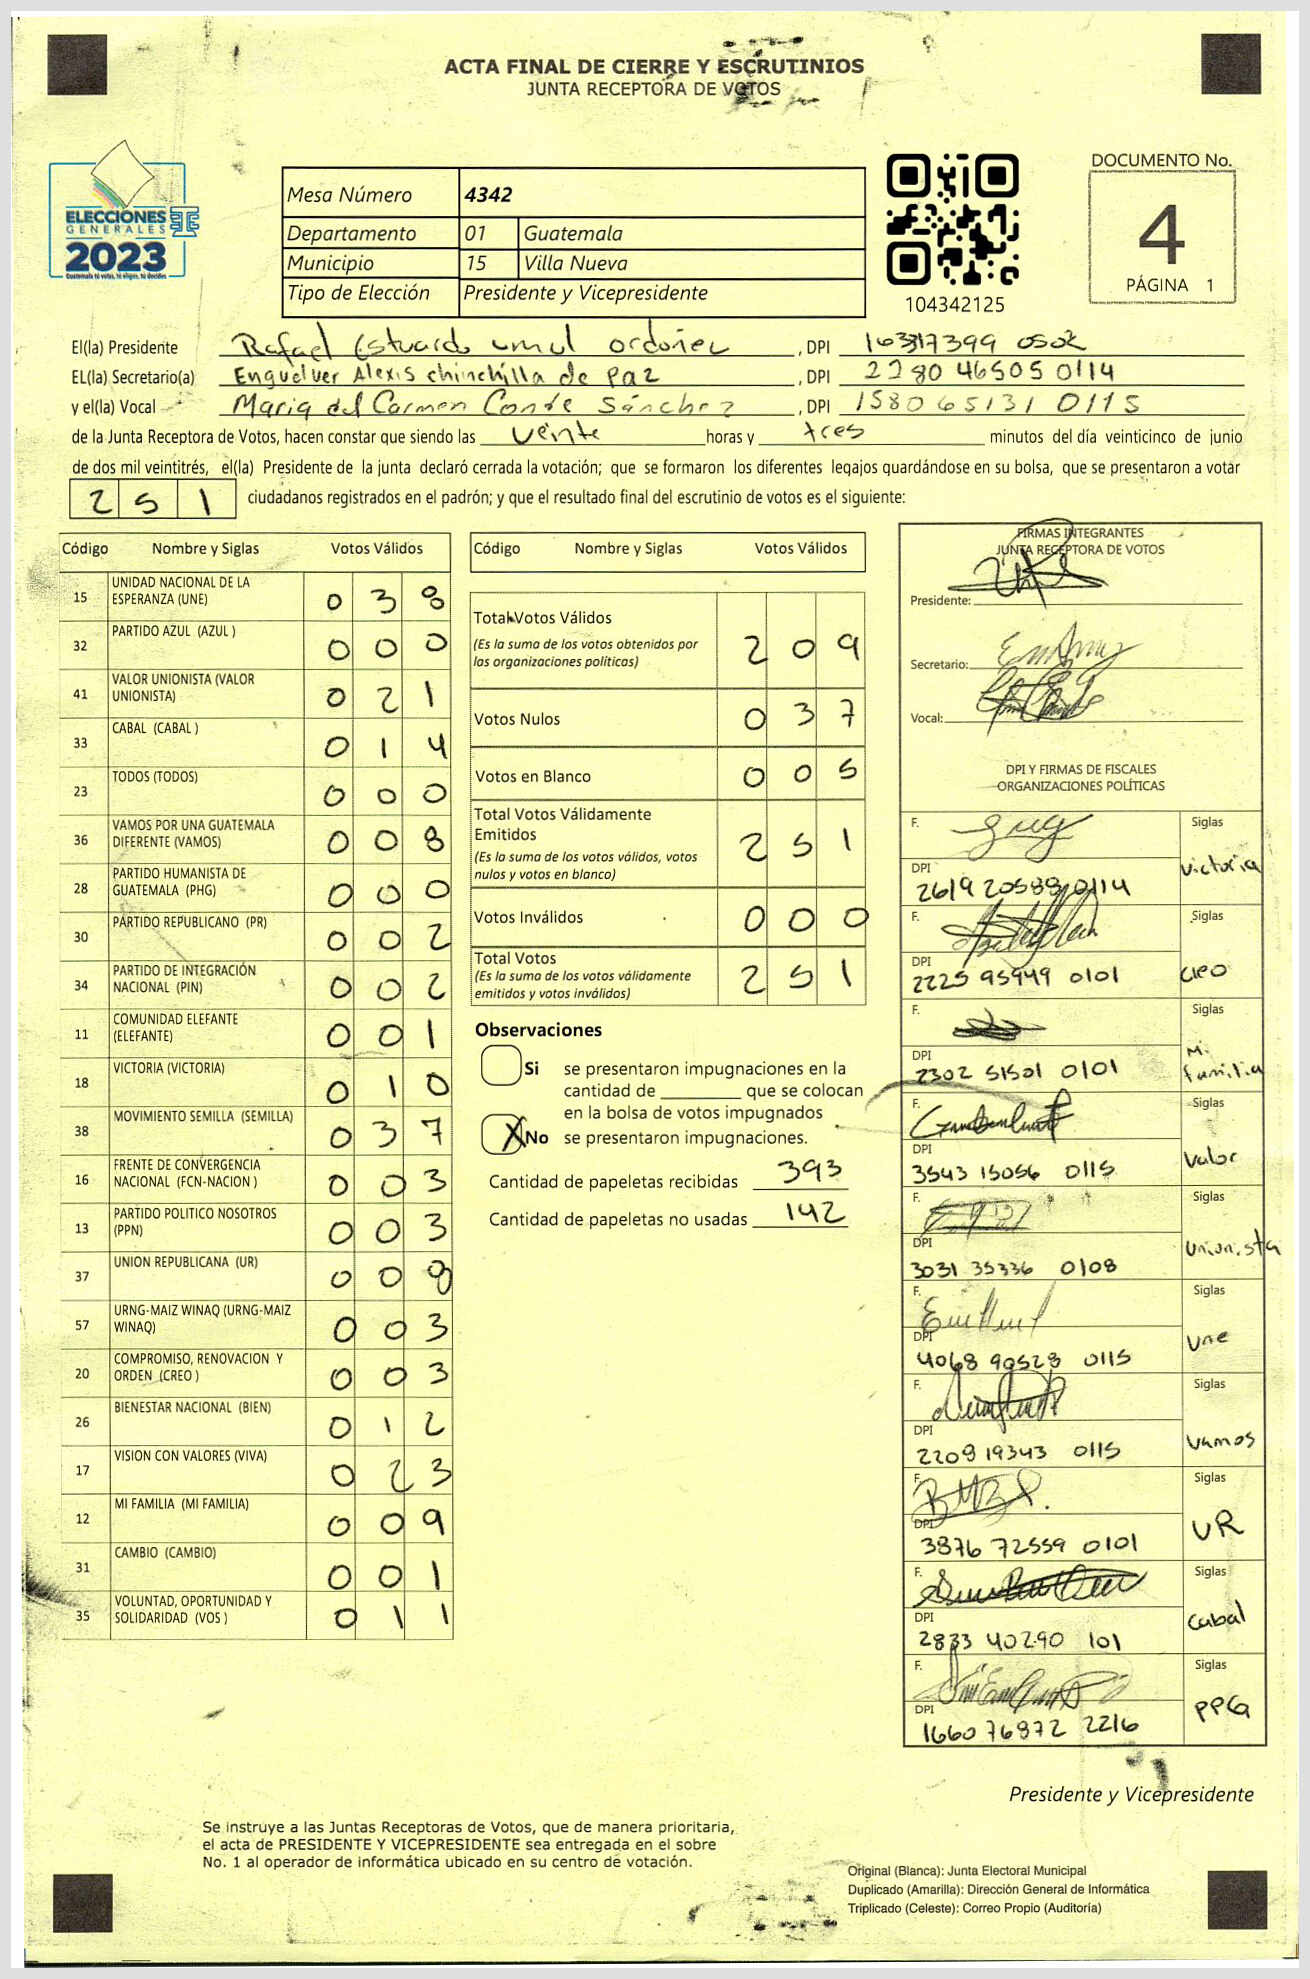 ACTA FINAL DE CIERRE Y ESCRUTINIOS
JUNTA RECEPTORA DE VOTOS
ELECCIONES
GENERALES
2023
Guatemala tú votas, tú eliges, tú decides
Mesa Número 4342
Departamento 01 Guatemala
Municipio 15 Villa Nueva
Tipo de Elección Presidente y Vicepresidente
104342125
DOCUMENTO No.
4
PÁGINA 1
El(la) Presidente Rafael Estuardo umul ordoñez , DPI 0502
EL(la) Secretario(a) Enguelver Alexis chinchilla de Paz , DPI 2280 46505 0114
y el(la) Vocal Maria del Carmen Conde Sánchez , DPI 1580 65131 0115
de la Junta Receptora de Votos, hacen constar que siendo las veinte horas y tres minutos del día veinticinco de junio
de dos mil veintitrés, el(la) Presidente de la junta declaró cerrada la votación; que se formaron los diferentes legajos guardándose en su bolsa, que se presentaron a votar
251 ciudadanos registrados en el padrón; y que el resultado final del escrutinio de votos es el siguiente:
Código Nombre y Siglas Votos Válidos
15 UNIDAD NACIONAL DE LA ESPERANZA (UNE) 0 3 8
32 PARTIDO AZUL (AZUL ) 0 0 0
41 VALOR UNIONISTA (VALOR UNIONISTA) 0 2 1
33 CABAL (CABAL ) 0 1 4
23 TODOS (TODOS) 0 0 0
36 VAMOS POR UNA GUATEMALA DIFERENTE (VAMOS) 0 0 8
28 PARTIDO HUMANISTA DE GUATEMALA (PHG) 0 0 0
30 PARTIDO REPUBLICANO (PR) 0 0 2
34 PARTIDO DE INTEGRACIÓN NACIONAL (PIN) 0 0 2
11 COMUNIDAD ELEFANTE (ELEFANTE) 0 0 1
18 VICTORIA (VICTORIA) 0 1 0
38 MOVIMIENTO SEMILLA (SEMILLA) 0 3 7
16 FRENTE DE CONVERGENCIA NACIONAL (FCN-NACION ) 0 0 3
13 PARTIDO POLITICO NOSOTROS (PPN) 0 0 3
37 UNION REPUBLICANA (UR) 0 0 8
57 URNG-MAIZ WINAQ (URNG-MAIZ WINAQ) 0 0 3
20 COMPROMISO, RENOVACION Y ORDEN (CREO ) 0 0 3
26 BIENESTAR NACIONAL (BIEN) 0 1 2
17 VISION CON VALORES (VIVA) 0 2 3
12 MI FAMILIA (MI FAMILIA) 0 0 9
31 CAMBIO (CAMBIO) 0 0 1
35 VOLUNTAD, OPORTUNIDAD Y SOLIDARIDAD (VOS ) 0 1 1
Código Nombre y Siglas Votos Válidos
Total Votos Válidos 2 0 9
(Es la suma de los votos obtenidos por
las organizaciones políticas)
Votos Nulos 0 3 7
Votos en Blanco 0 0 5
Total Votos Válidamente
Emitidos 2 5 1
(Es la suma de los votos válidos, votos
nulos y votos en blanco)
Votos Inválidos 0 0 0
Total Votos 2 5 1
(Es la suma de los votos válidamente
emitidos y votos inválidos)
Observaciones
Si se presentaron impugnaciones en la
cantidad de ________ que se colocan
en la bolsa de votos impugnados
X No se presentaron impugnaciones.
Cantidad de papeletas recibidas 393
Cantidad de papeletas no usadas 142
FIRMAS INTEGRANTES
JUNTA RECEPTORA DE VOTOS
Presidente:
Secretario:
Vocal:
DPI Y FIRMAS DE FISCALES
ORGANIZACIONES POLÍTICAS
F. Siglas
DPI victoria
2619 20588 0114
F. Siglas
DPI creo
2225 95949 0101
F. Siglas
DPI Mi familia
2302 51501 0101
F. Siglas
DPI Valor
3543 15056 0115
F. Siglas
DPI Unionista
3031 35336 0108
F. Siglas
DPI Une
4068 90528 0115
F. Siglas
DPI Vamos
2209 19343 0115
F. Siglas
DPI UR
3876 72559 0101
F. Siglas
DPI Cabal
2833 40290 101
F. Siglas
DPI PPG
1660 76872 2216
Presidente y Vicepresidente
Se instruye a las Juntas Receptoras de Votos, que de manera prioritaria,
el acta de PRESIDENTE Y VICEPRESIDENTE sea entregada en el sobre
No. 1 al operador de informática ubicado en su centro de votación.
Original (Blanca): Junta Electoral Municipal
Duplicado (Amarilla): Dirección General de Informática
Triplicado (Celeste): Correo Propio (Auditoría)